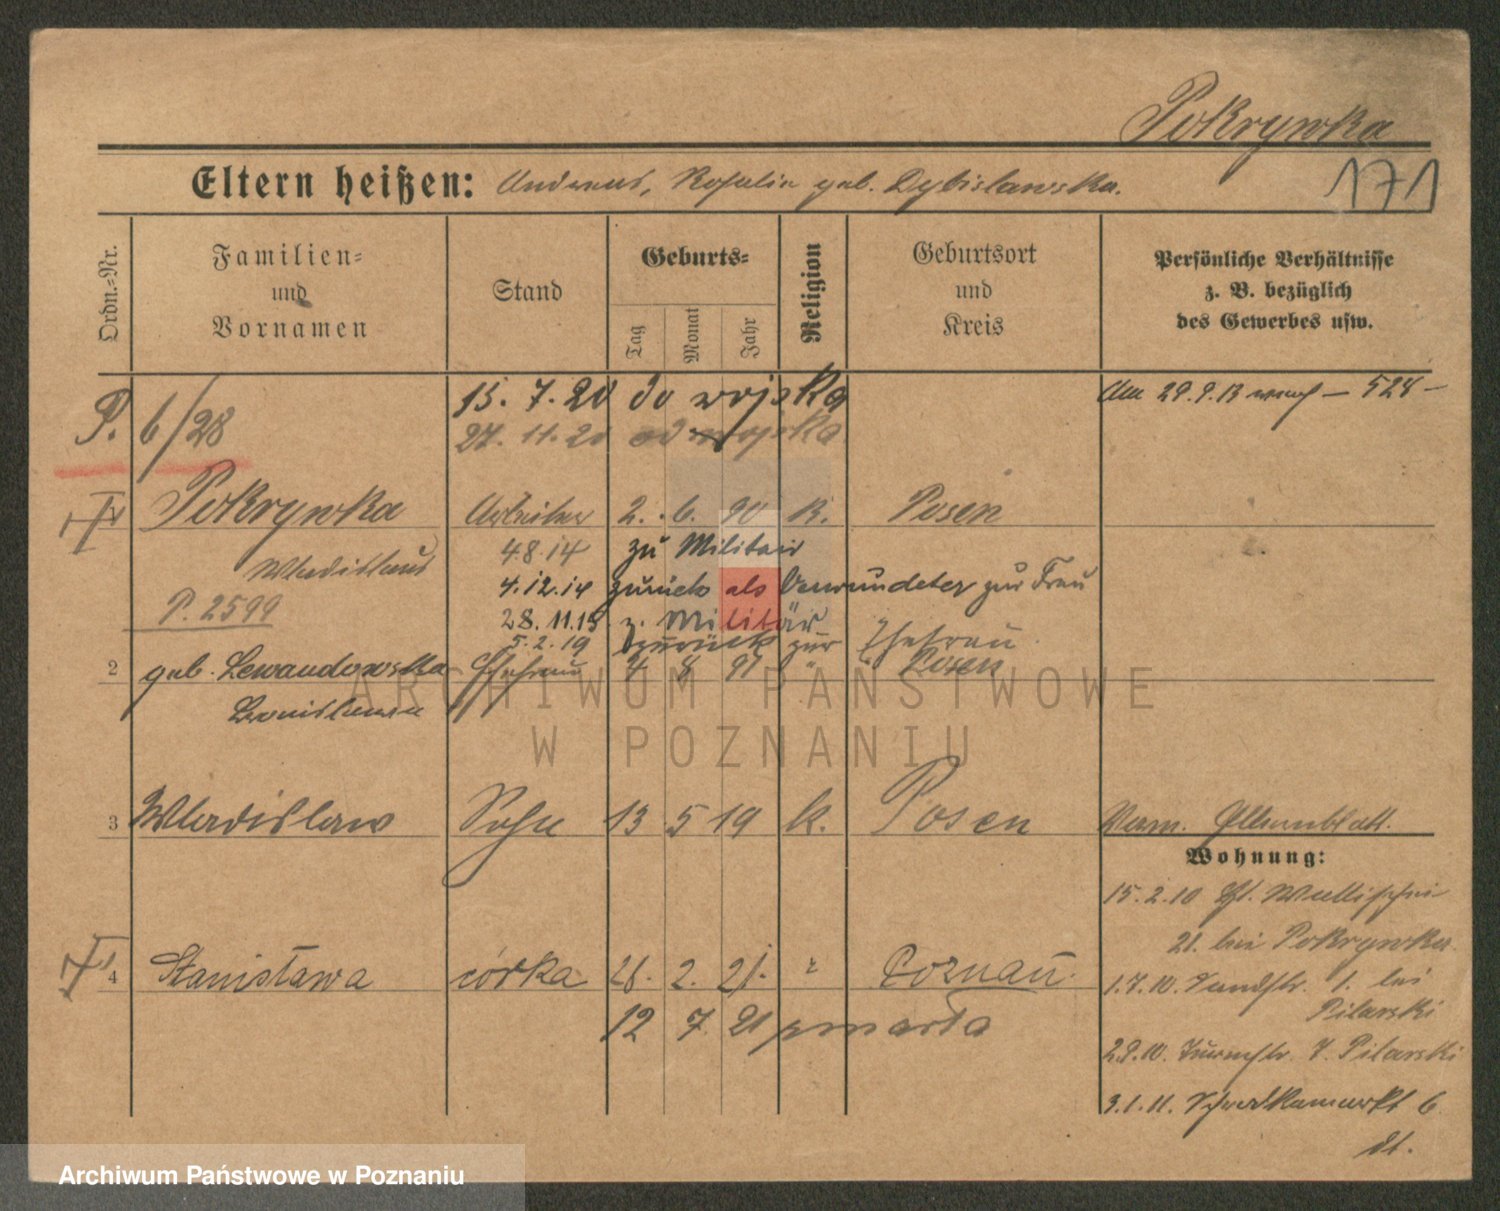 Pokrywka
171
Eltern heißen: Andreas, Rosalie geb. Dybislawska.
Ordn.-Nr.
Familien-
und
Vornamen
Stand
Geburts-
Tag
Monat
Jahr
Religion
Geburtsort
und
Kreis
Persönliche Verhältnisse
z. B. bezüglich
des Gewerbes usw.
P. 6/28
15. 7. 20 do wojska
27. 11. 20 od wojska
Am 29.9.13 — 524 —
1 Pokrywka Arbeiter 2. 6. 90 K. Posen
Wladislaus
4.8.14 zu Militair
4.12.14 zurück als Verwundeter zur Frau
P. 2599
28.11.15 z. Militär
5.2.19 zurück zur Ehefrau.
2 geb. Lewandowska Ehefrau 4 8 91 " Posen
Bronislawa
3 Wladislaw Sohn 13 5 19 K. Posen
Verm. Elternblatt.
Wohnung:
15.2.10 Wallischei
21. bei Pokrywka.
4 Stanisława córka 28. 2. 21. " Poznań.
1.7.10. Sandstr. 1. bei
Pilarski
12 7. 21 zmarła
2.9.10. Turmstr. 7. Pilarski
3.1.11. Schrodkamarkt 6
ARCHIWUM PAŃSTWOWE
W POZNANIU
Archiwum Państwowe w Poznaniu